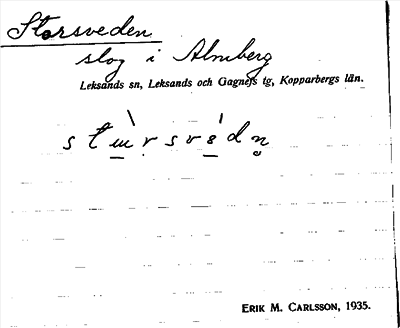 Storsveden
slog i Almberg
Leksands sn, Leksands och Gagnefs tg, Kopparbergs län.
ERIK M. CARLSSON, 1935.